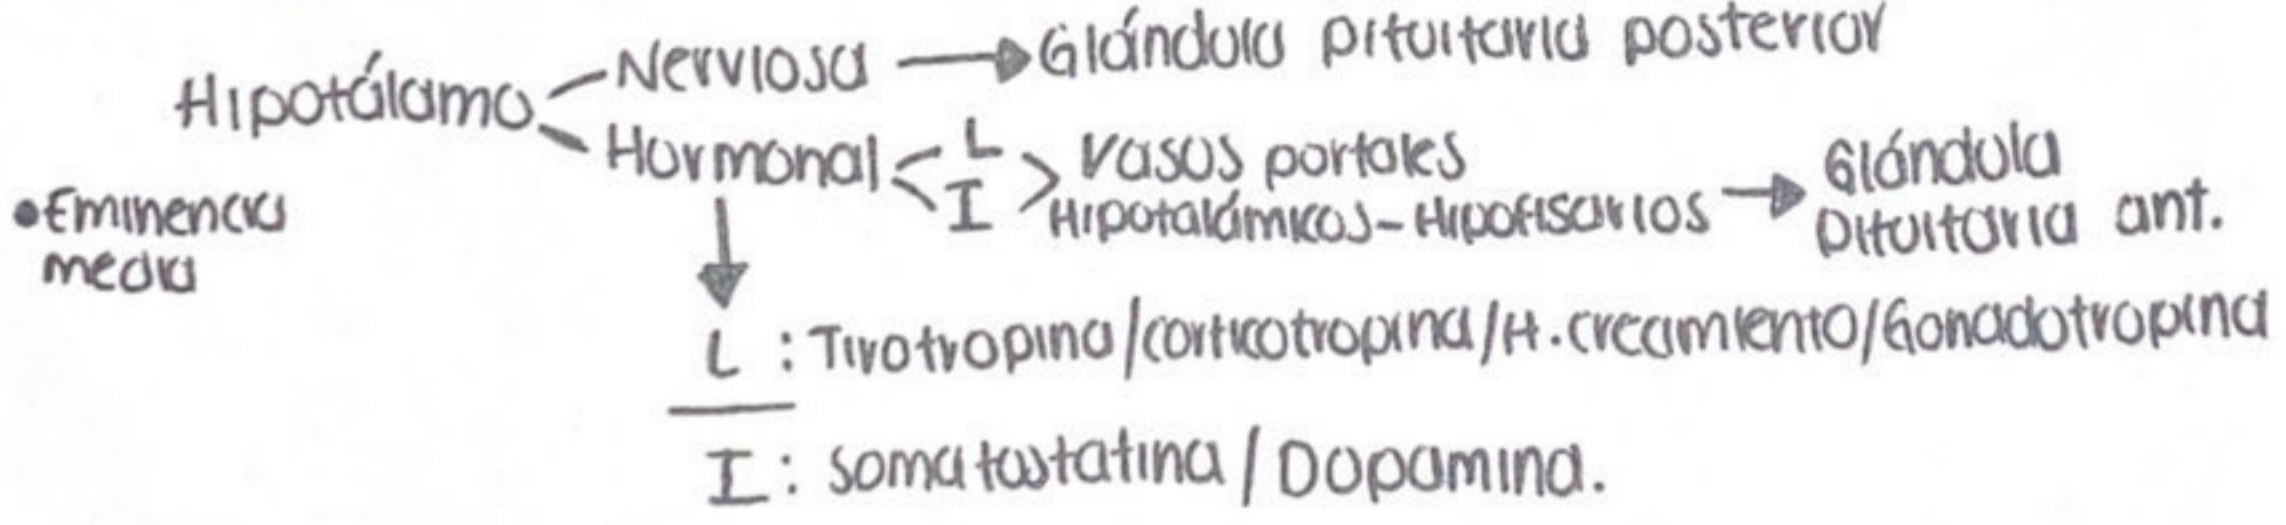 Hipotálamo
Nerviosa → Glándula pituitaria posterior
Hormonal < L I > Vasos portales
Hipotalámicos-Hipofisarios → Glándula
pituitaria ant.
•Eminencia
media
L : Tirotropina/corticotropina/H.crecimiento/Gonadotropina
I : somatostatina / Dopamina.